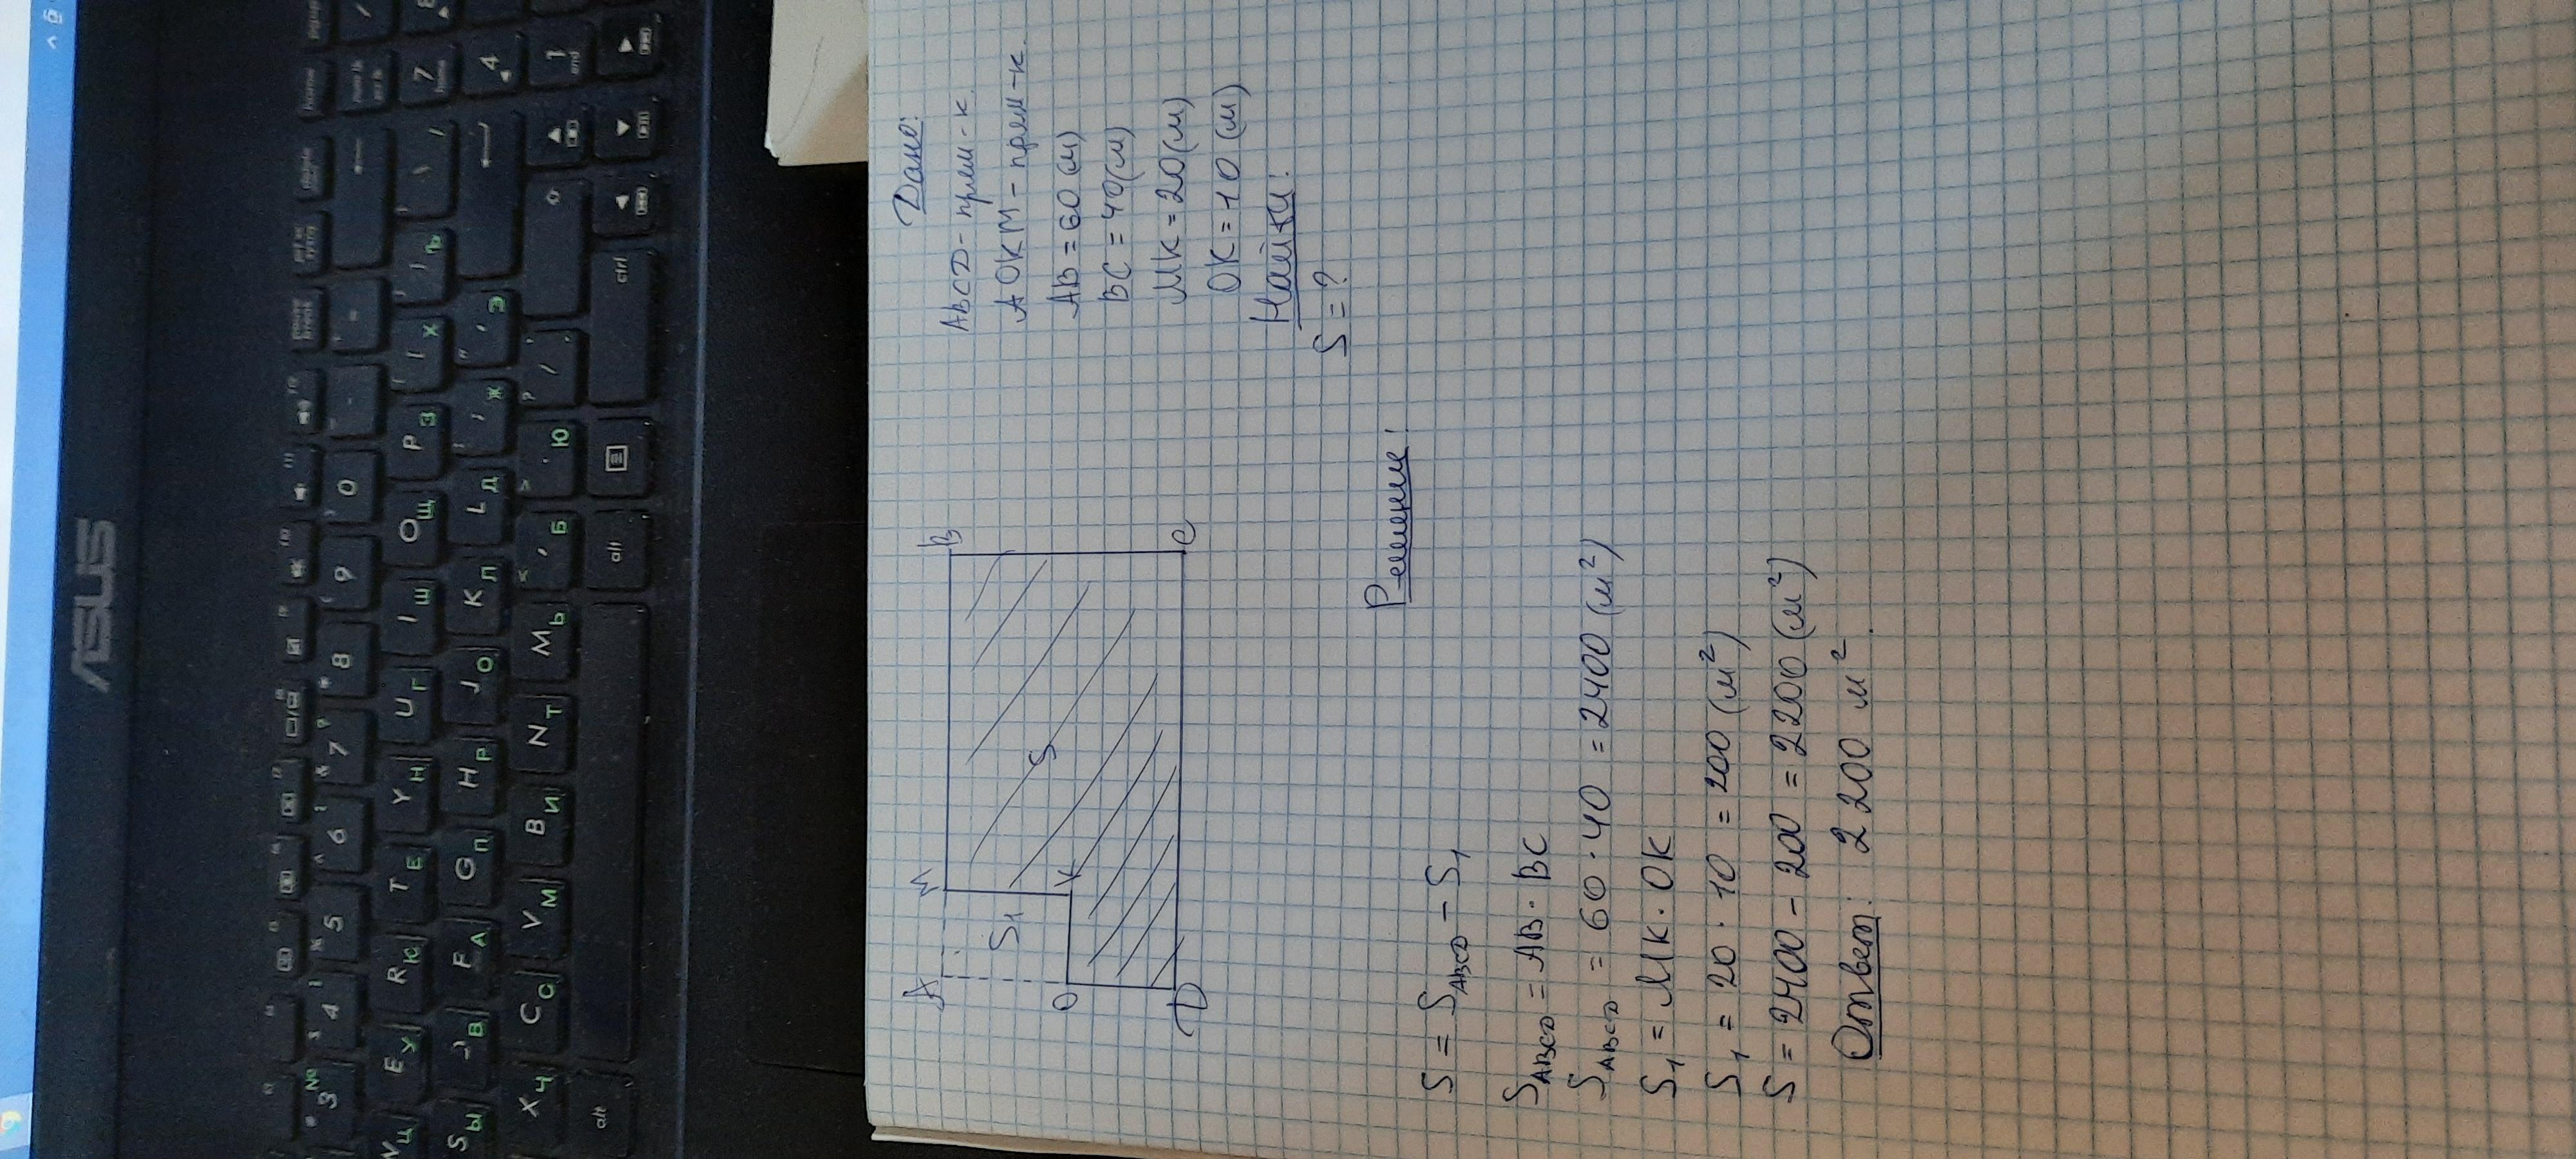 ASUS
Дано:
ABCD - прям-к.
AOKM - прям-к.
AB = 60 (м)
BC = 40 (м)
MK = 20 (м)
OK = 10 (м)
Найти:
S = ?
A
M
B
S1
K
S
O
D
C
Решение:
S = SABCD - S1
SABCD = AB · BC
SABCD = 60 · 40 = 2400 (м²)
S1 = MK · OK
S1 = 20 · 10 = 200 (м²)
S = 2400 - 200 = 2200 (м²)
Ответ: 2200 м².